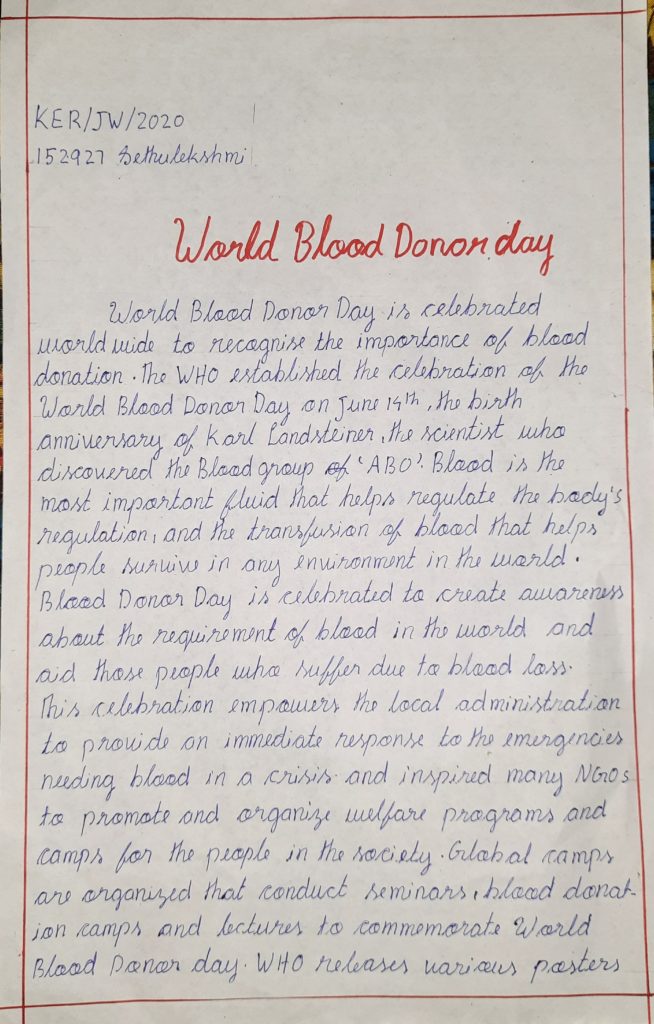 KER/JW/2020
152927 Sethulekshmi
World Blood Donor day
World Blood Donor Day is celebrated
world wide to recognise the importance of blood
donation. The WHO established the celebration of the
World Blood Donor Day on June 14th, the birth
anniversary of Karl Landsteiner, the scientist who
discovered the Blood group of 'ABO'. Blood is the
most important fluid that helps regulate the body's
regulation, and the transfusion of blood that helps
people survive in any environment in the world.
Blood Donor Day is celebrated to create awareness
about the requirement of blood in the world and
aid those people who suffer due to blood loss.
This celebration empowers the local administration
to provide an immediate response to the emergencies
needing blood in a crisis and inspired many NGOs
to promote and organize welfare programs and
camps for the people in the society. Global camps
are organized that conduct seminars, blood donat-
ion camps and lectures to commemorate World
Blood Donor day. WHO releases various posters